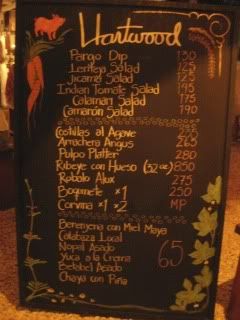 Hartwood
Pango Dip 130
Lenteja Salad 125
Jicama Salad 125
Indian Tomate Salad 195
Calamari Salad 175
Camarón Salad 190
Costillas al Agave
Arrachera Angus 265
Pulpo Platter 280
Ribeye con Hueso (32 oz) 850
Robalo Ajux 275
Boquinete x1 250
Corvina x1 x2 MP
Berenjena con Miel Maya
Calabaza Local
Nopal Asado 65
Yuca a la Crema
Betabel Asado
Chaya con Piña